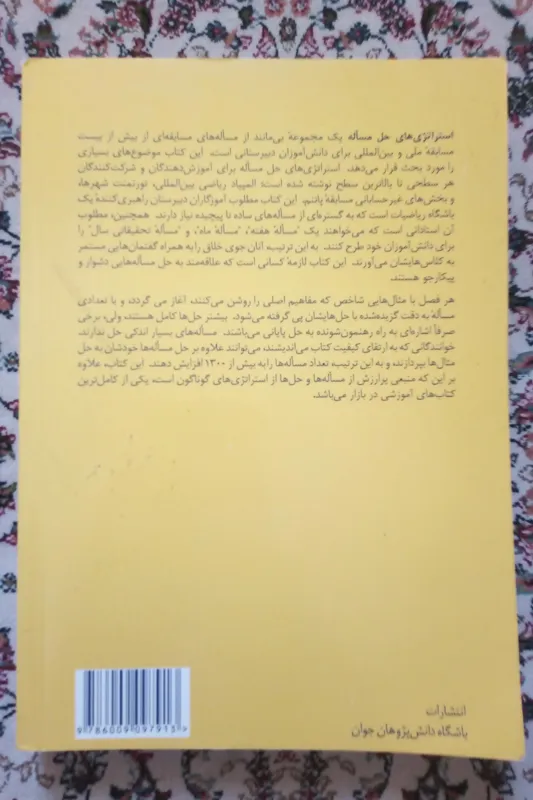 استراتژی‌های حل مسأله یک مجموعهٔ بی‌مانند از مسأله‌های مسابقه‌ای از بیش از بیست
مسابقهٔ ملی و بین‌المللی برای دانش‌آموزان دبیرستانی است. این کتاب موضوع‌های بسیاری
را مورد بحث قرار می‌دهد. استراتژی‌های حل مسأله برای آموزش‌دهندگان و شرکت‌کنندگان
هر سطحی تا بالاترین سطح نوشته شده است: المپیاد ریاضی بین‌المللی، تورنمنت شهرها،
و بخش‌های غیرحسابانی مسابقهٔ پاتنم. این کتاب مطلوب آموزگاران دبیرستان راهبری‌کنندهٔ یک
باشگاه ریاضیات است که به گستره‌ای از مسأله‌های ساده تا پیچیده نیاز دارند. همچنین، مطلوب
آن استادانی است که می‌خواهند یک "مسألهٔ هفته"، "مسألهٔ ماه"، و "مسألهٔ تحقیقاتی سال" را
برای دانش‌آموزان خود طرح کنند. به این ترتیب، آنان جوی خلاق را به همراه گفتمان‌هایی مستمر
به کلاس‌هایشان می‌آورند. این کتاب لازمهٔ کسانی است که علاقه‌مند به حل مسأله‌هایی دشوار و
پیکارجو هستند.
هر فصل با مثال‌هایی شاخص که مفاهیم اصلی را روشن می‌کنند، آغاز می گردد، و با تعدادی
مسأله به دقت گزیده‌شده با حل‌هایشان پی گرفته می‌شود. بیشتر حل‌ها کامل هستند، ولی، برخی
صرفاً اشاره‌ای به راه رهنمون‌شونده به حل پایانی می‌باشند. مسأله‌های بسیار اندکی حل ندارند.
خوانندگانی که به ارتقای کیفیت کتاب می‌اندیشند، می‌توانند علاوه بر حل مسأله‌ها خودشان به حل
مثال‌ها بپردازند، و به این ترتیب، تعداد مسأله‌ها را به بیش از ۱۳۰۰ افزایش دهند. این کتاب، علاوه
بر این که منبعی پرارزش از مسأله‌ها و حل‌ها از استراتژی‌های گوناگون است، یکی از کامل‌ترین
کتاب‌های آموزشی در بازار می‌باشد.
انتشارات
باشگاه دانش‌پژوهان جوان
9 786009 097913